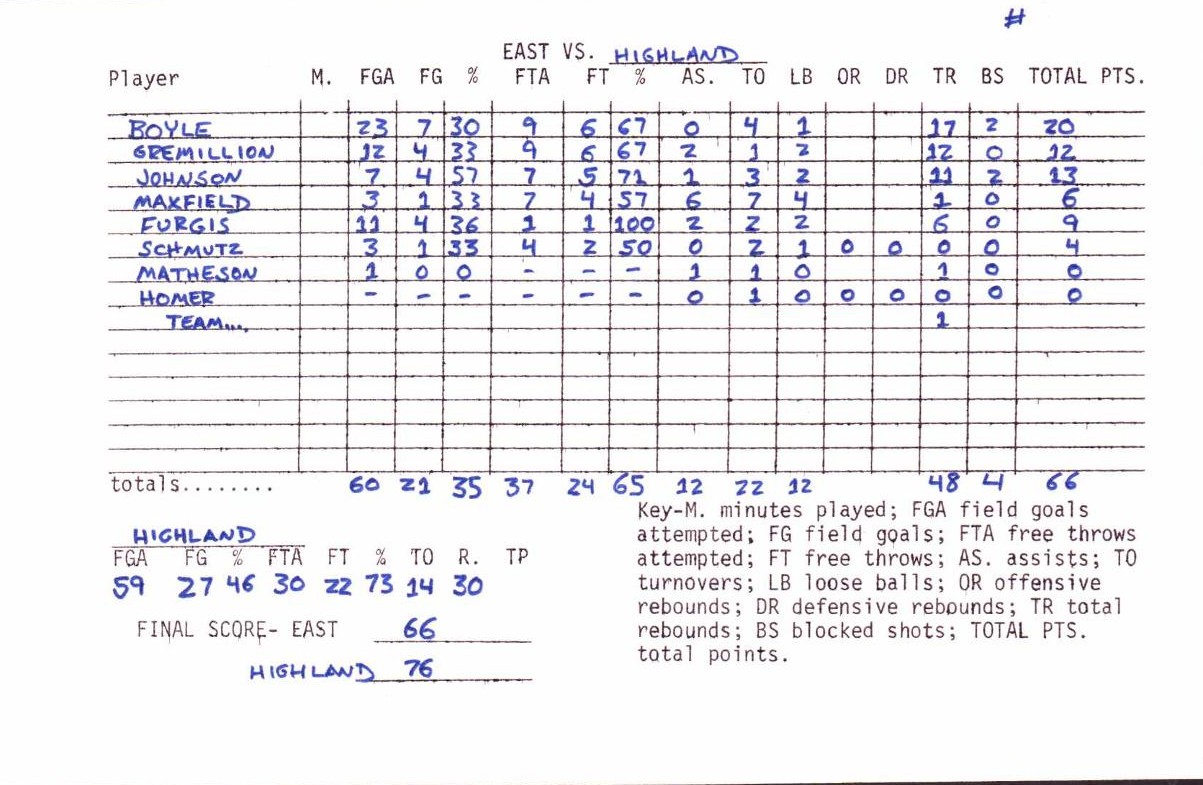 #
EAST VS. HIGHLAND
Player M. FGA FG % FTA FT % AS. TO LB OR DR TR BS TOTAL PTS.
BOYLE 23 7 30 9 6 67 0 4 1 17 2 20
GREMILLION 12 4 33 9 6 67 2 1 2 12 0 12
JOHNSON 7 4 57 7 5 71 1 3 2 11 2 13
MAXFIELD 3 1 33 7 4 57 6 7 4 1 0 6
FURGIS 11 4 36 1 1 100 2 2 2 6 0 9
SCHMUTZ 3 1 33 4 2 50 0 2 1 0 0 0 0 4
MATHESON 1 0 0 - - - 1 1 0 1 0 0
HOMER - - - - - - 0 1 0 0 0 0 0 0
TEAM... 1
totals........ 60 21 35 37 24 65 12 22 12 48 4 66
Key-M. minutes played; FGA field goals
attempted; FG field goals; FTA free throws
attempted; FT free throws; AS. assists; TO
turnovers; LB loose balls; OR offensive
rebounds; DR defensive rebounds; TR total
rebounds; BS blocked shots; TOTAL PTS.
total points.
HIGHLAND
FGA FG % FTA FT % TO R. TP
59 27 46 30 22 73 14 30
FINAL SCORE- EAST 66
HIGHLAND 76